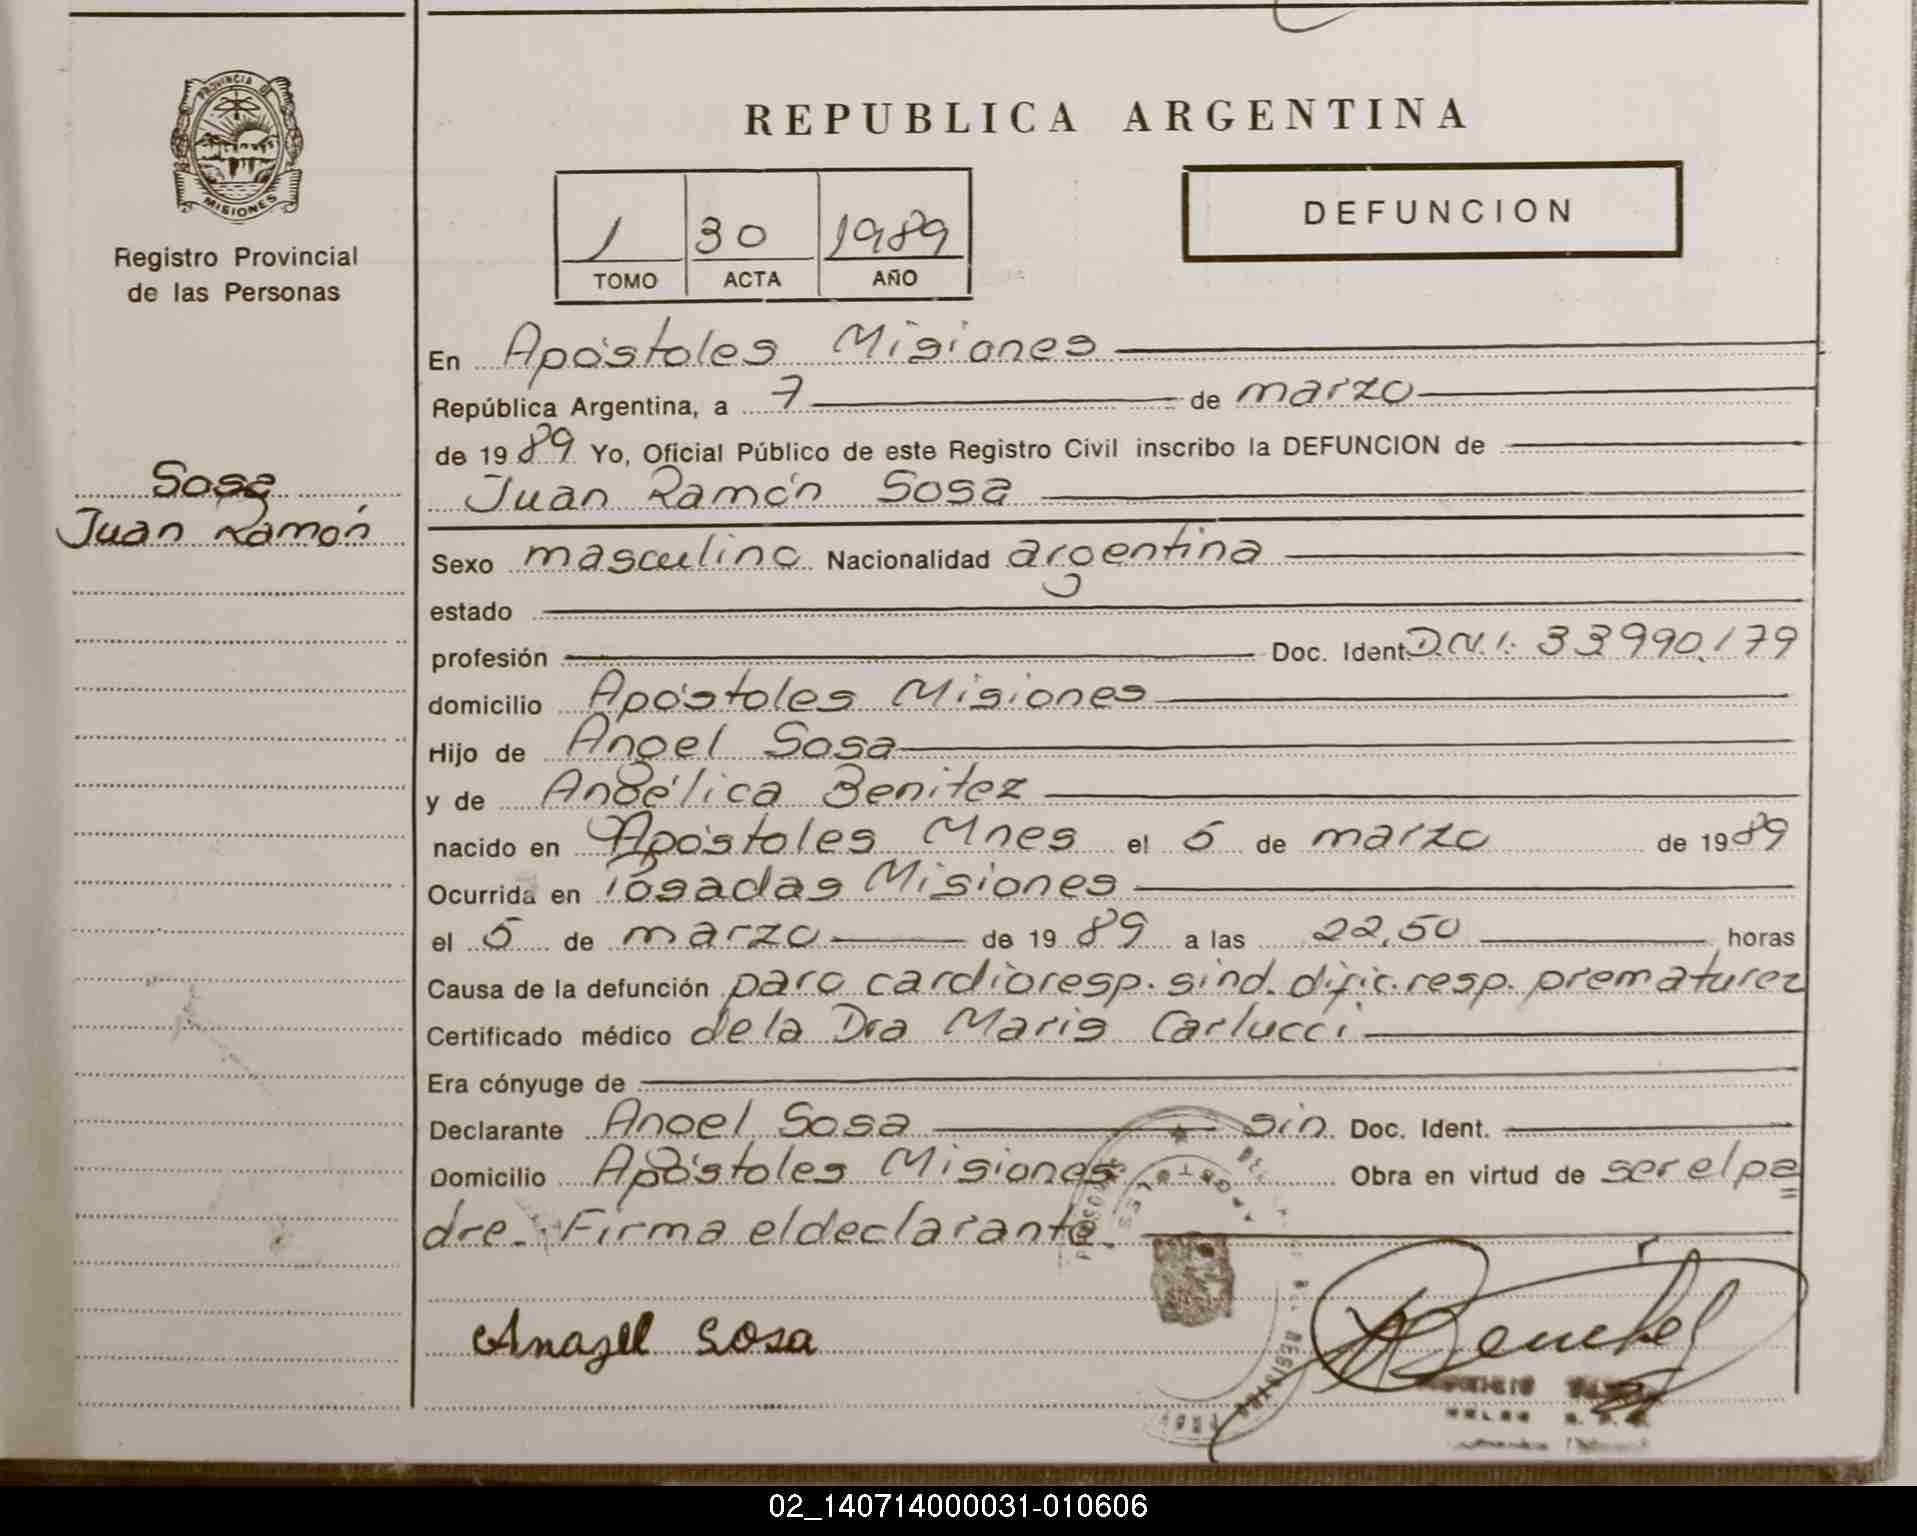 PROVINCIA DE
MISIONES
Registro Provincial
de las Personas
Sosa
Juan Ramón
REPUBLICA ARGENTINA
1 30 1989
TOMO ACTA AÑO
DEFUNCION
En Apóstoles Misiones
República Argentina, a 7 de marzo
de 1989 Yo, Oficial Público de este Registro Civil inscribo la DEFUNCION de
Juan Ramón Sosa
Sexo masculino Nacionalidad argentina
estado
profesión Doc. Ident. D.N.I. 33990.179
domicilio Apóstoles Misiones
Hijo de Angel Sosa
y de Angélica Benitez
nacido en Apóstoles Mnes el 5 de marzo de 1989
Ocurrida en Posadas Misiones
el 5 de marzo de 1989 a las 22,50 horas
Causa de la defunción paro cardioresp. sind. dific. resp. prematurez
Certificado médico de la Dra Maris Carlucci
Era cónyuge de
Declarante Angel Sosa sin Doc. Ident.
Domicilio Apóstoles Misiones Obra en virtud de ser el pa
dre. Firma el declarante
Sosa
02_140714000031-010606